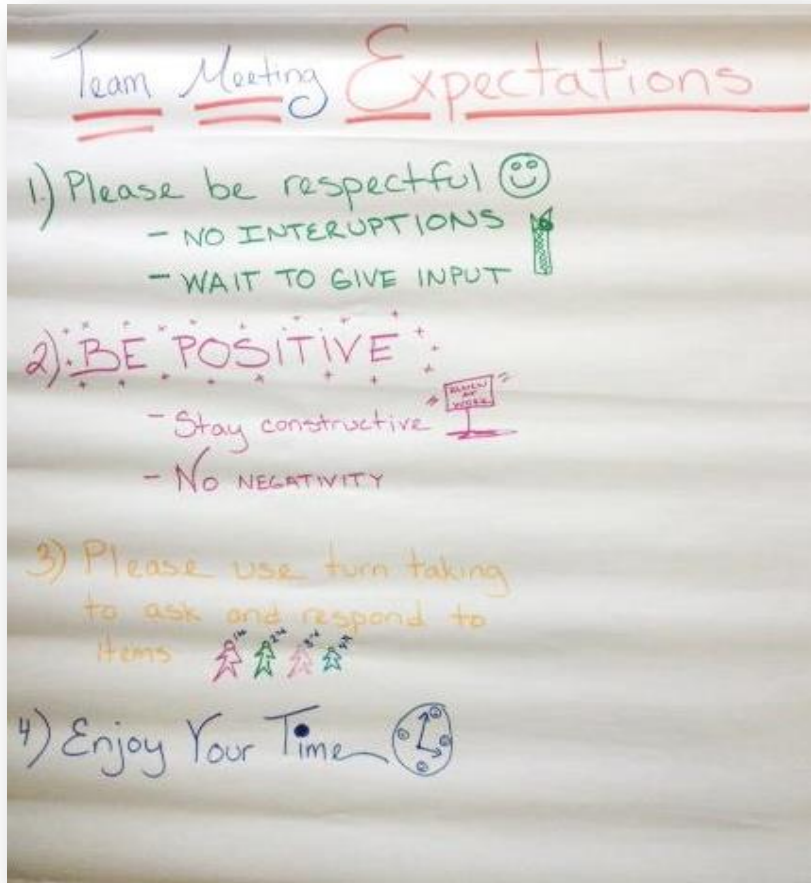 Team Meeting Expectations
1.) Please be respectful
- NO INTERUPTIONS
- WAIT TO GIVE INPUT
2) BE POSITIVE
- Stay constructive
AT
WORK
- NO NEGATIVITY
3) Please use turn taking
to ask and respond to
items
4) Enjoy Your Time